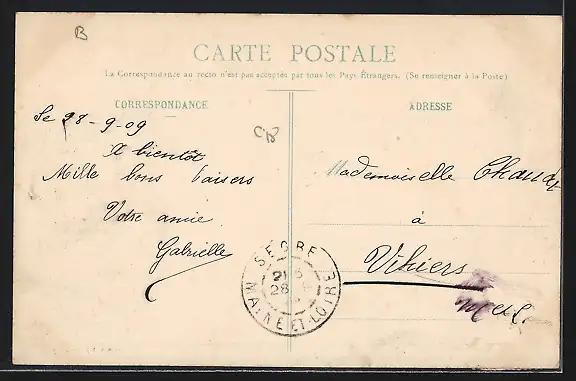 B
CARTE POSTALE
La Correspondance au recto n'est pas acceptée par tous les Pays Étrangers. (Se renseigner à la Poste)
CORRESPONDANCE
ADRESSE
Le 28-9-09
A bientôt
Mille bons baisers
Votre amie
Gabrielle
Mademoiselle
à
Vihiers
M et L.
SEGRE
28
MAINE-ET-LOIRE